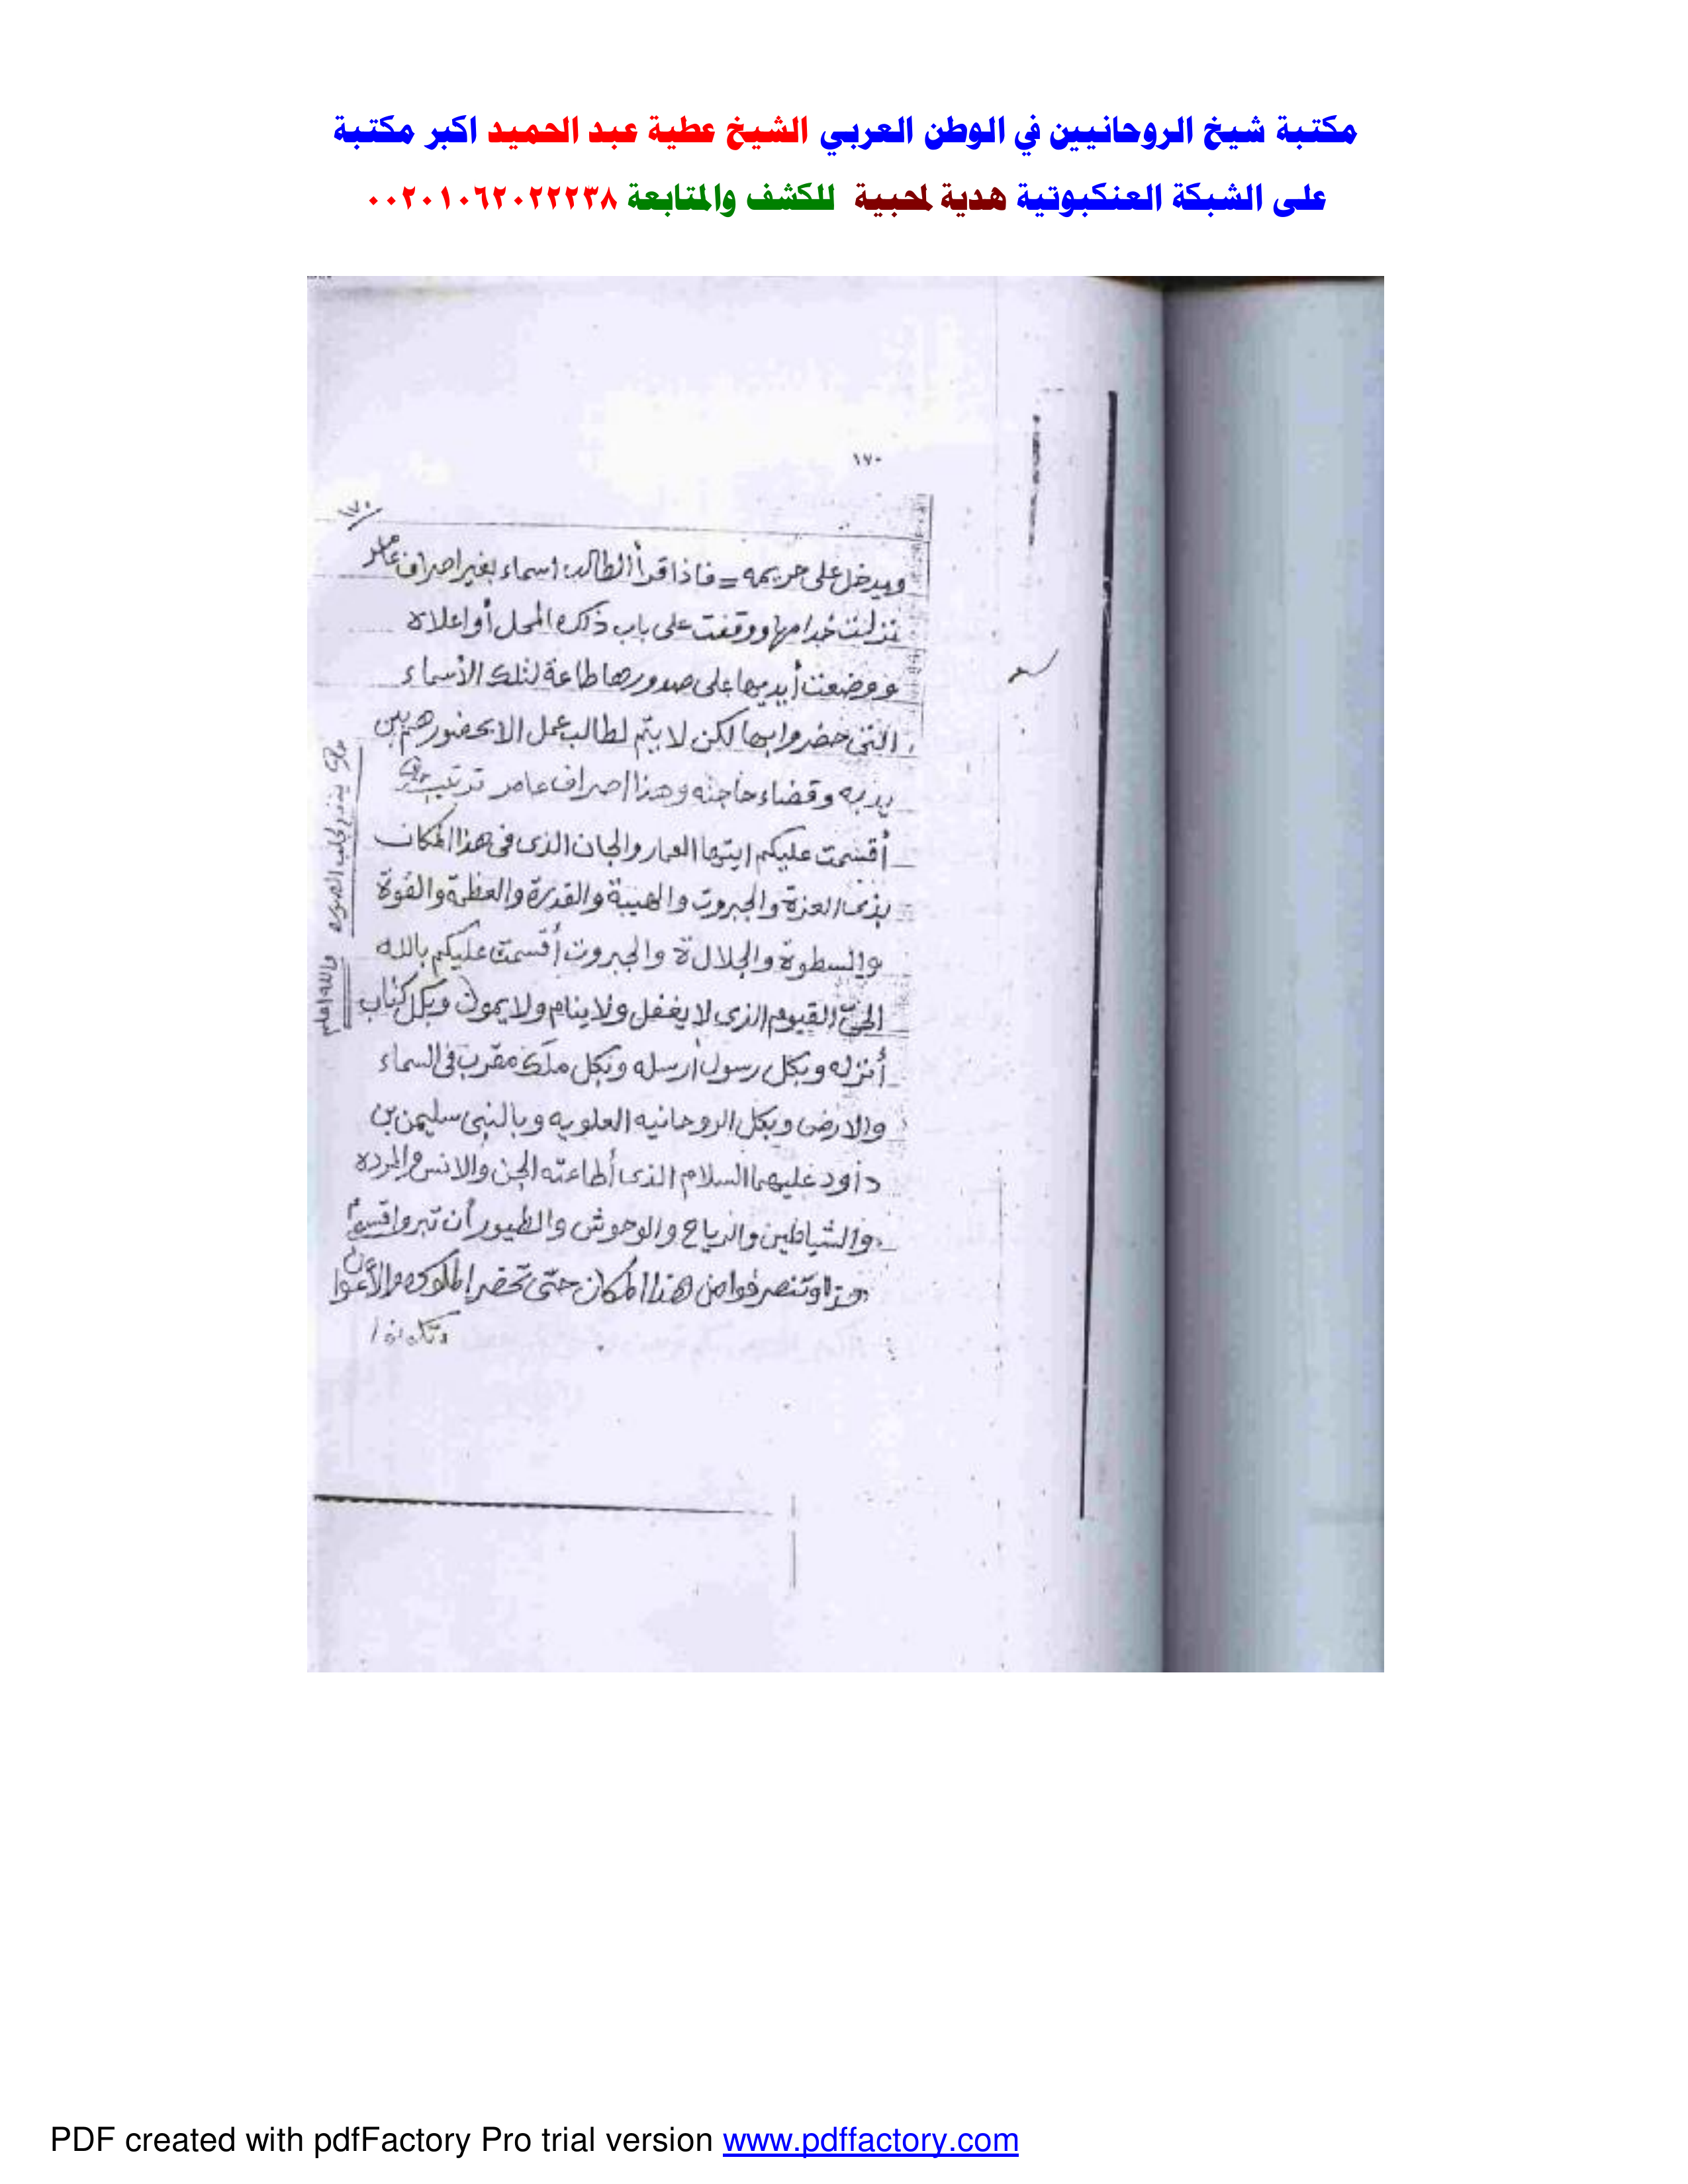 مكتبة شيخ الروحانيين في الوطن العربي الشيخ عطية عبد الحميد اكبر مكتبة
على الشبكة العنكبوتية هدية لمحبية للكشف والمتابعة ٠٠٢٠١٠٦٢٠٢٢٢٣٨
١٧٠
١٧٠
ويدخل على حريمه = فاذا قرأ الطالب اسماء بغير اصراف عامر
نزلت خدامها ووقفت على باب ذلك المحل أو اعلاه
ووضعت أيديها على صدورها طاعة لتلك الأسماء
التي حضروا بها لكن لا يتم لطالب عمل الا بحضورهم بين
يديه وقضاء حاجته وهذا اصراف عامر ترتيب
أقسمت عليكم ايتها العمار والجان الذى فى هذا المكان
بذى العزة والجبروت والهيبة والقدرة والعظمة والقوة
والسطوة والجلالة والجبروت أقسمت عليكم بالله
الحىّ القيوم الذى لا يغفل ولا ينام ولا يموت وبكل كتاب
أنزله وبكل رسول أرسله وبكل ملك مقرب فى السماء
والارض وبكل الروحانيه العلويه وبالنبى سليمن بن
داود عليهما السلام الذى أطاعته الجن والانس والمرده
والشياطين والرياح والوحوش والطيور أن تبروا قسمى
هذا وتنصرفوا من هذا المكان حتّى تحضر الملوك والأعوان
وتكونوا
ينفع لجلب الصوره
والله اعلم
PDF created with pdfFactory Pro trial version www.pdffactory.com